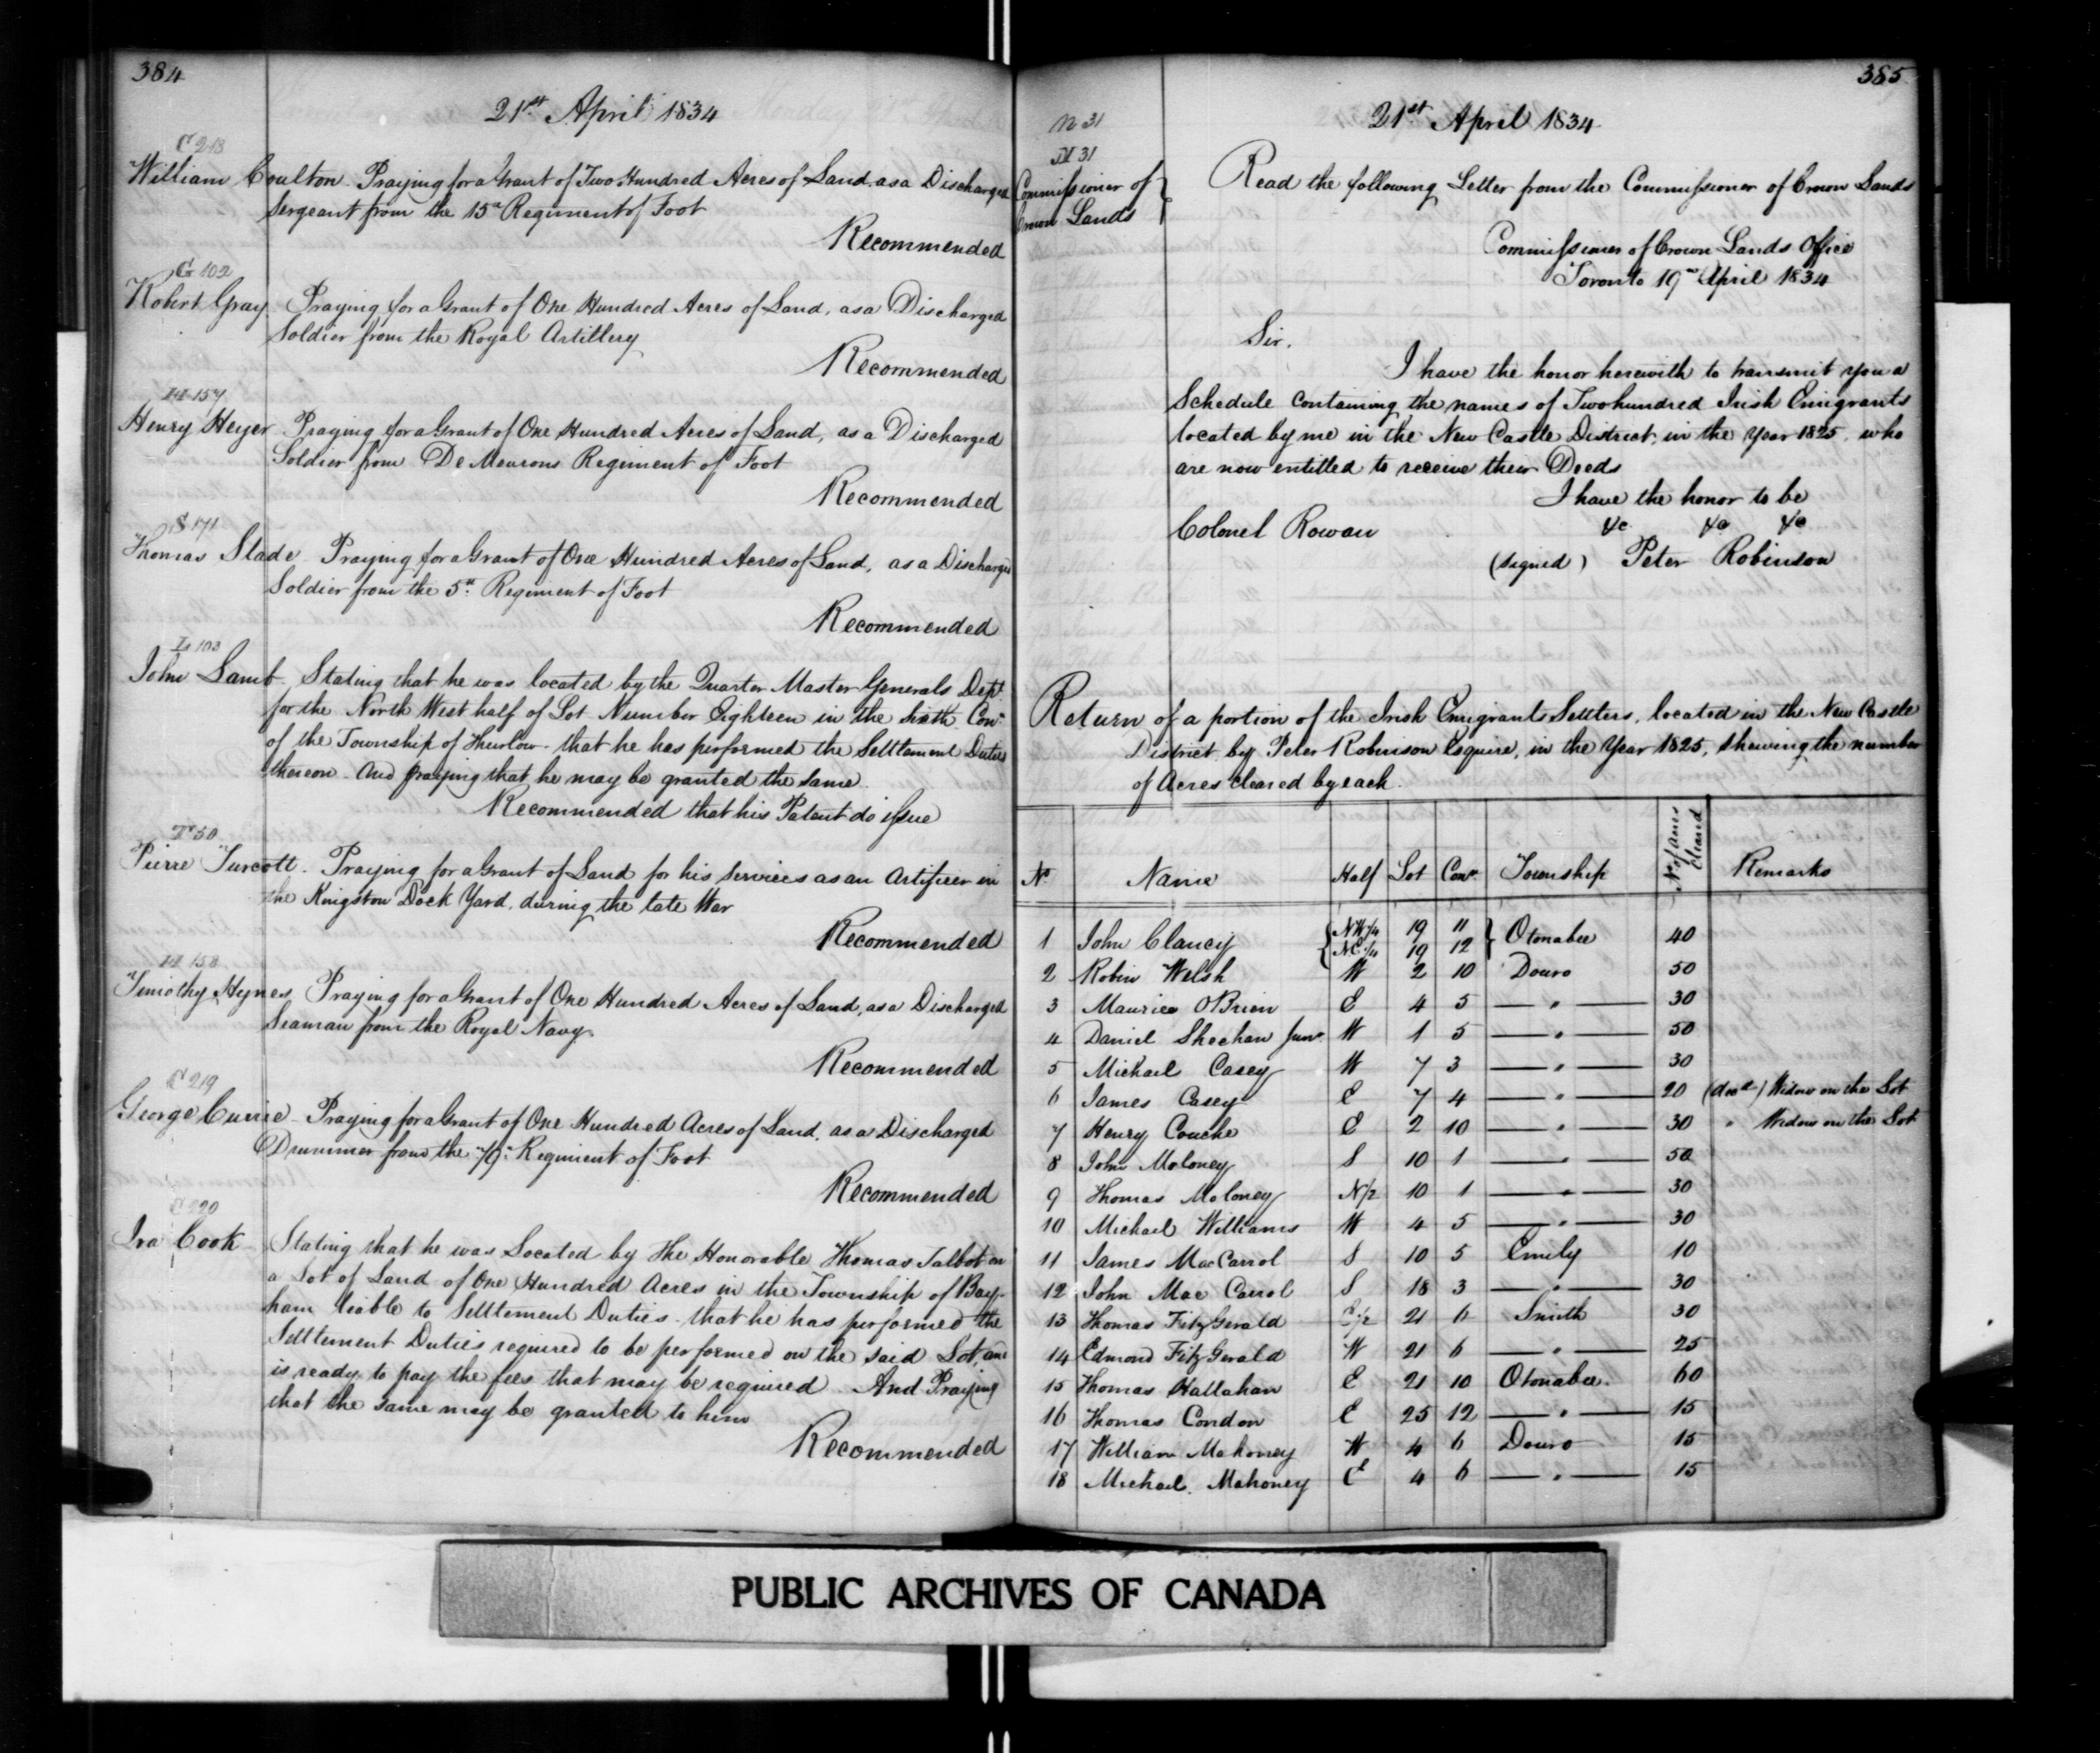 384
21st April 1834
C 218
William Coulton. Praying for a Grant of Two Hundred Acres of Land, as a Discharged
Sergeant from the 15th Regiment of Foot
Recommended
G 102
Robert Gray. Praying for a Grant of One Hundred Acres of Land, as a Discharged
Soldier from the Royal Artillery
Recommended
H 157
Henry Heyer Praying for a Grant of One Hundred Acres of Land, as a Discharged
Soldier from De Meurons Regiment of Foot
Recommended
S 171
Thomas Slade. Praying for a Grant of One Hundred Acres of Land, as a Discharged
Soldier from the 5th Regiment of Foot
Recommended
L 103
John Lamb. Stating that he was located by the Quarter Master Generals Dept
for the North West half of Lot Number Eighteen in the Sixth Conn
of the Township of Thurlow. that he has performed the Settlement Duties
thereon. And praying that he may be granted the same.
Recommended that his Patent do issue
T 50
Pierre Turcott. Praying for a Grant of Land for his services as an Artificer in
the Kingston Dock Yard, during the late War
Recommended
H 158
Timothy Hynes, Praying for a Grant of One Hundred Acres of Land, as a Discharged
Seaman from the Royal Navy.
Recommended
C 219
George Currie. Praying for a Grant of One Hundred Acres of Land, as a Discharged
Drummer from the 70th Regiment of Foot
Recommended
C 220
Ira Cook Stating that he was Located by The Honorable Thomas Talbot on
a Lot of Land of One Hundred Acres in the Township of Bay-
ham liable to Settlement Duties. that he has performed the
Settlement Duties required to be performed on the said Lot, and
is ready to pay the fees that may be required. And Praying
that the same may be granted to him
Recommended
385
21st April 1834
N 31
M 31
Commissioner of
Crown Lands
Read the following Letter from the Commissioner of Crown Lands
Commissioner of Crown Lands Office
Toronto 19th April 1834
Sir.
I have the honor herewith to transmit you a
Schedule containing the names of Two hundred Irish Emigrants
located by me in the New Castle District, in the Year 1825, who
are now entitled to receive their Deeds
I have the honor to be
&c &c &c
Colonel Rowan
(signed) Peter Robinson
Return of a portion of the Irish Emigrants Settlers, located in the New Castle
District by Peter Robinson Esquire, in the Year 1825, shewing the number
of Acres cleared by each.
No Name Half Lot Conn Township No of Acres Cleared Remarks
1 John Clancy { NW 1/4 19 11 } Otonabee 40
{ NE 1/4 19 12 }
2 Robin Welsh W 2 10 Douro 50
3 Maurice OBrien E 4 5 — " — 30
4 Daniel Sheehan Junr W 1 5 — " — 50
5 Michael Casey W 7 3 — " — 30
6 James Casey E 7 4 — " — 20 (decd) Widow on the Lot
7 Henry Couche E 2 10 — " — 30 " Widow on the Lot
8 John Moloney S 10 1 — " — 50
9 Thomas Moloney N 1/2 10 1 — " — 30
10 Michael Williams W 4 5 — " — 30
11 James MacCarrol S 10 5 Emily 10
12 John Mac Carrol S 18 3 — " — 30
13 Thomas FitzGerald E 1/2 21 6 Smith 30
14 Edmond FitzGerald W 21 6 — " — 25
15 Thomas Hallahan E 21 10 Otonabee. 60
16 Thomas Condon E 25 12 — " — 15
17 William Mahoney W 4 6 Douro 15
18 Michael Mahoney E 4 6 — " — 15
PUBLIC ARCHIVES OF CANADA